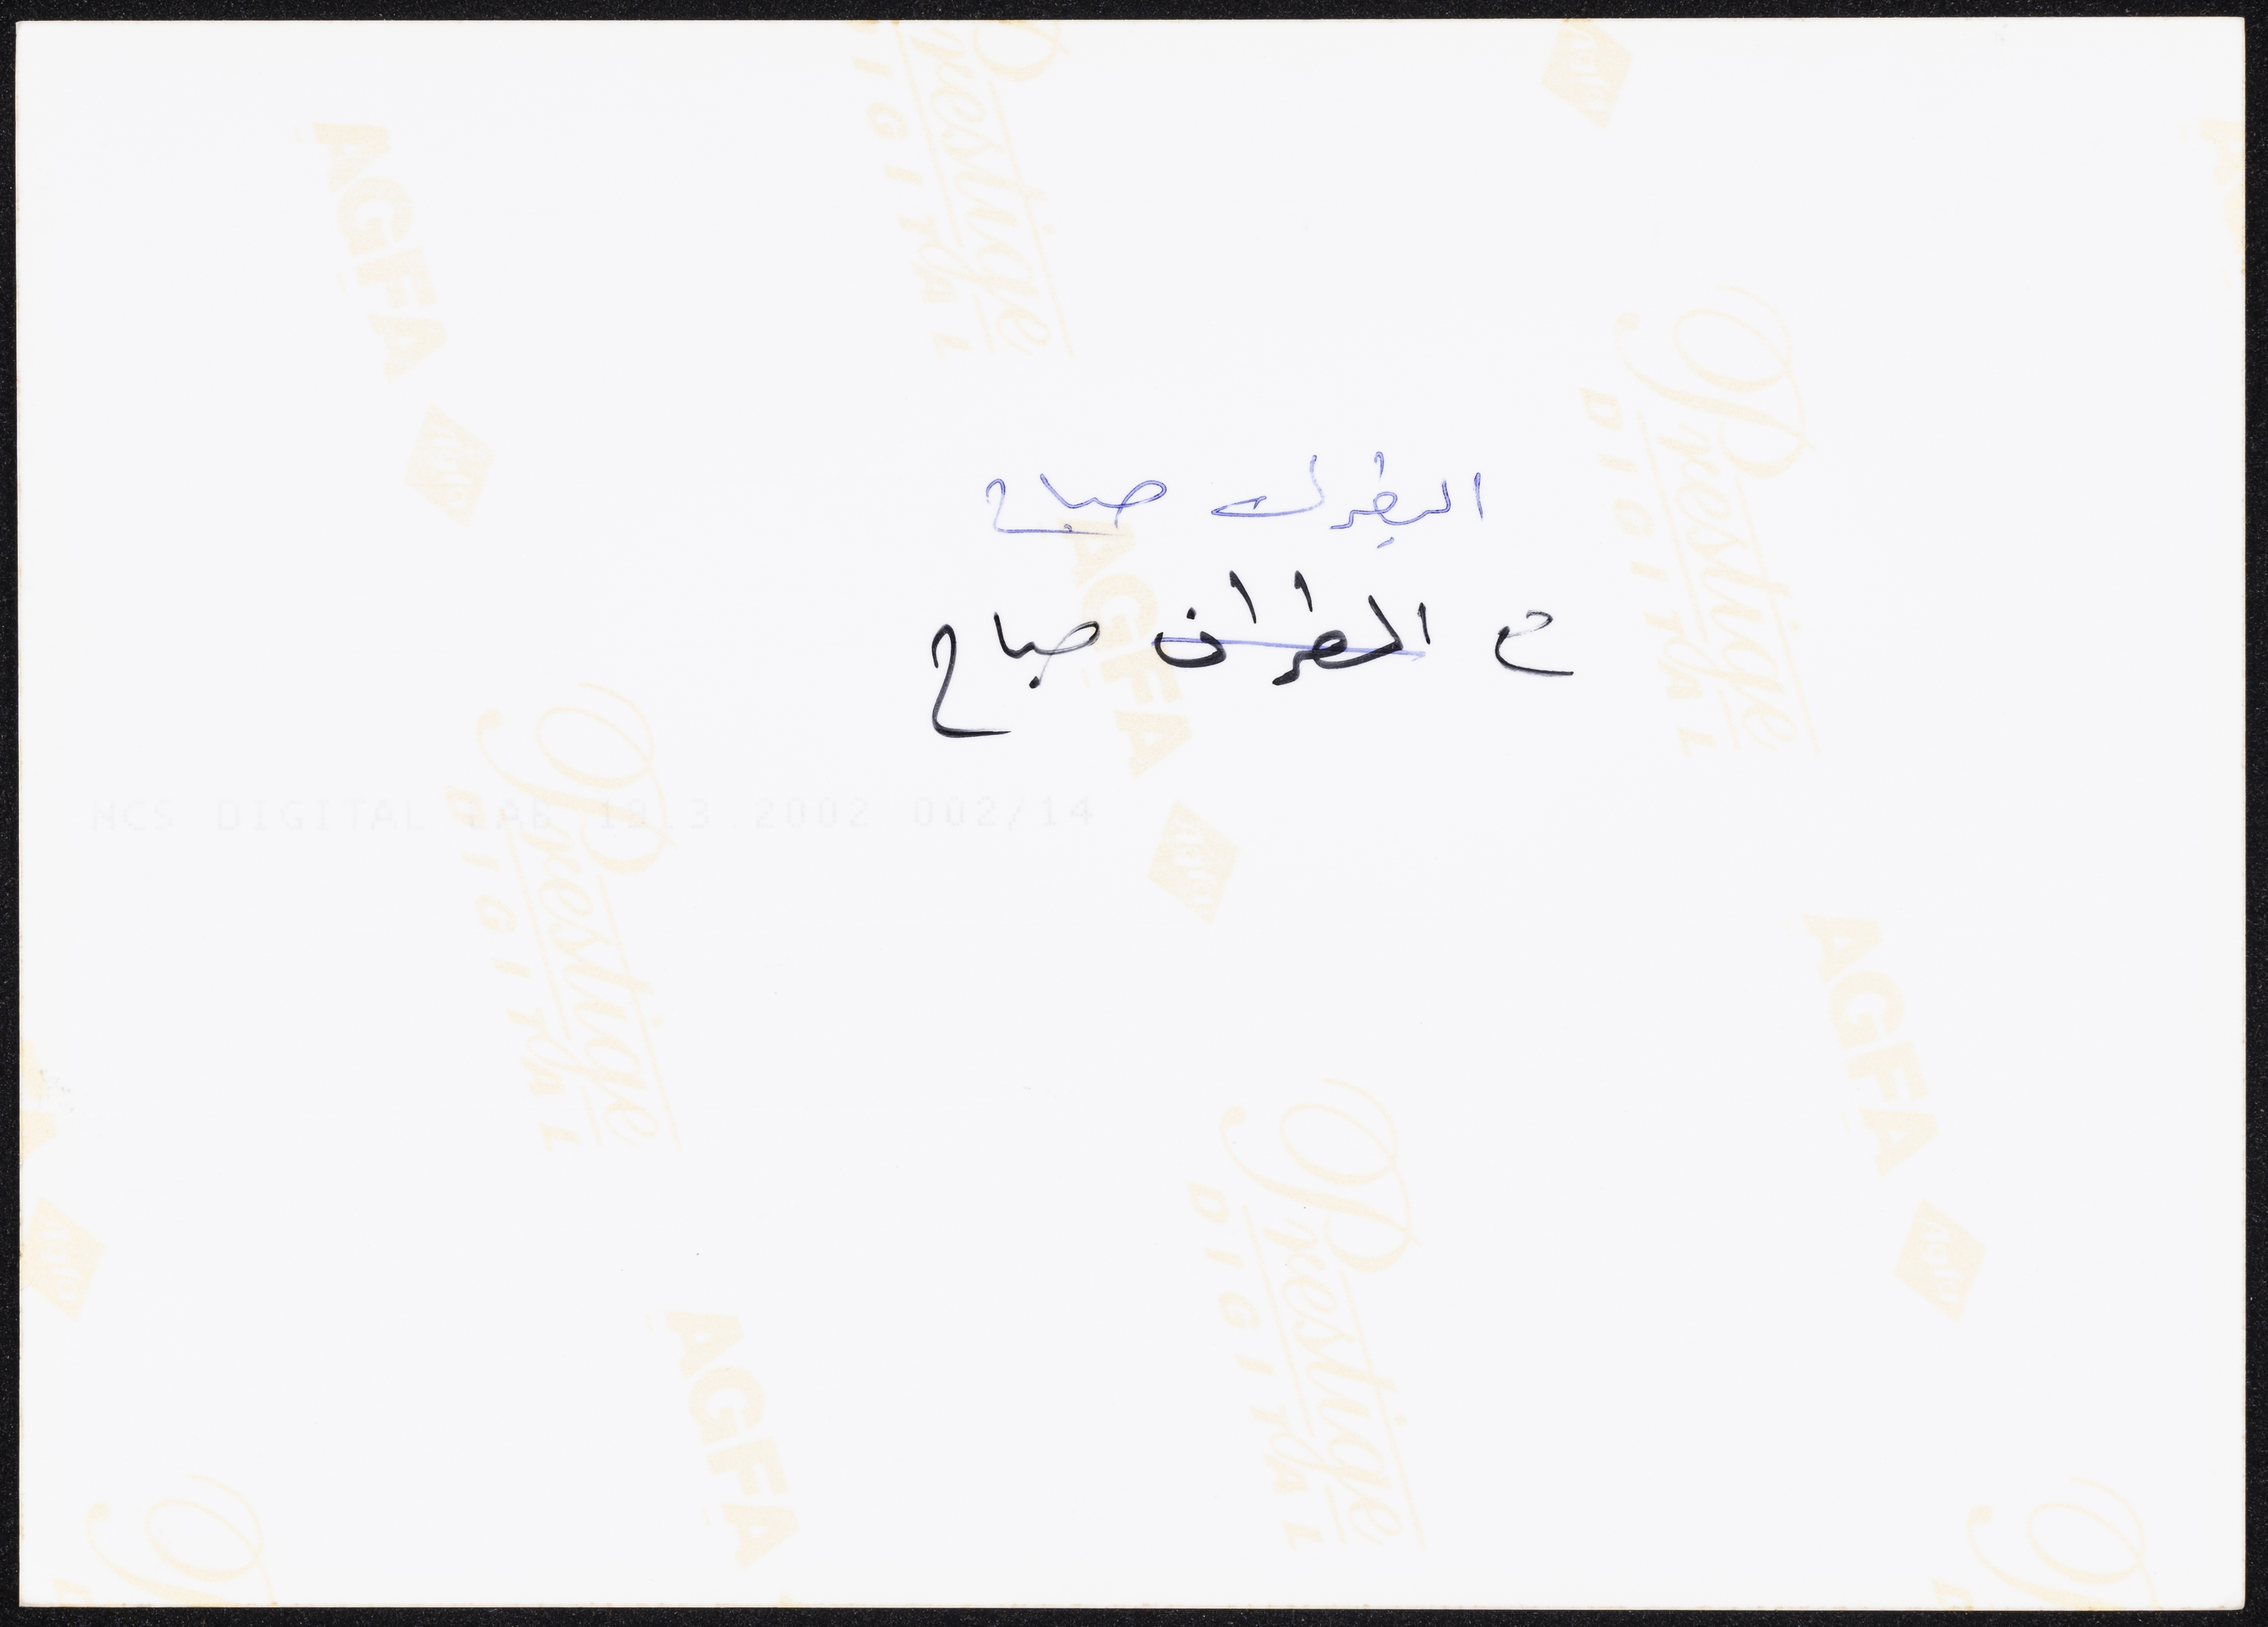 البطرك صباح
ح المطران صباح
NCS DIGITAL LAB 19.3.2002 002/14
AGFA
Prestige
DIGITAL